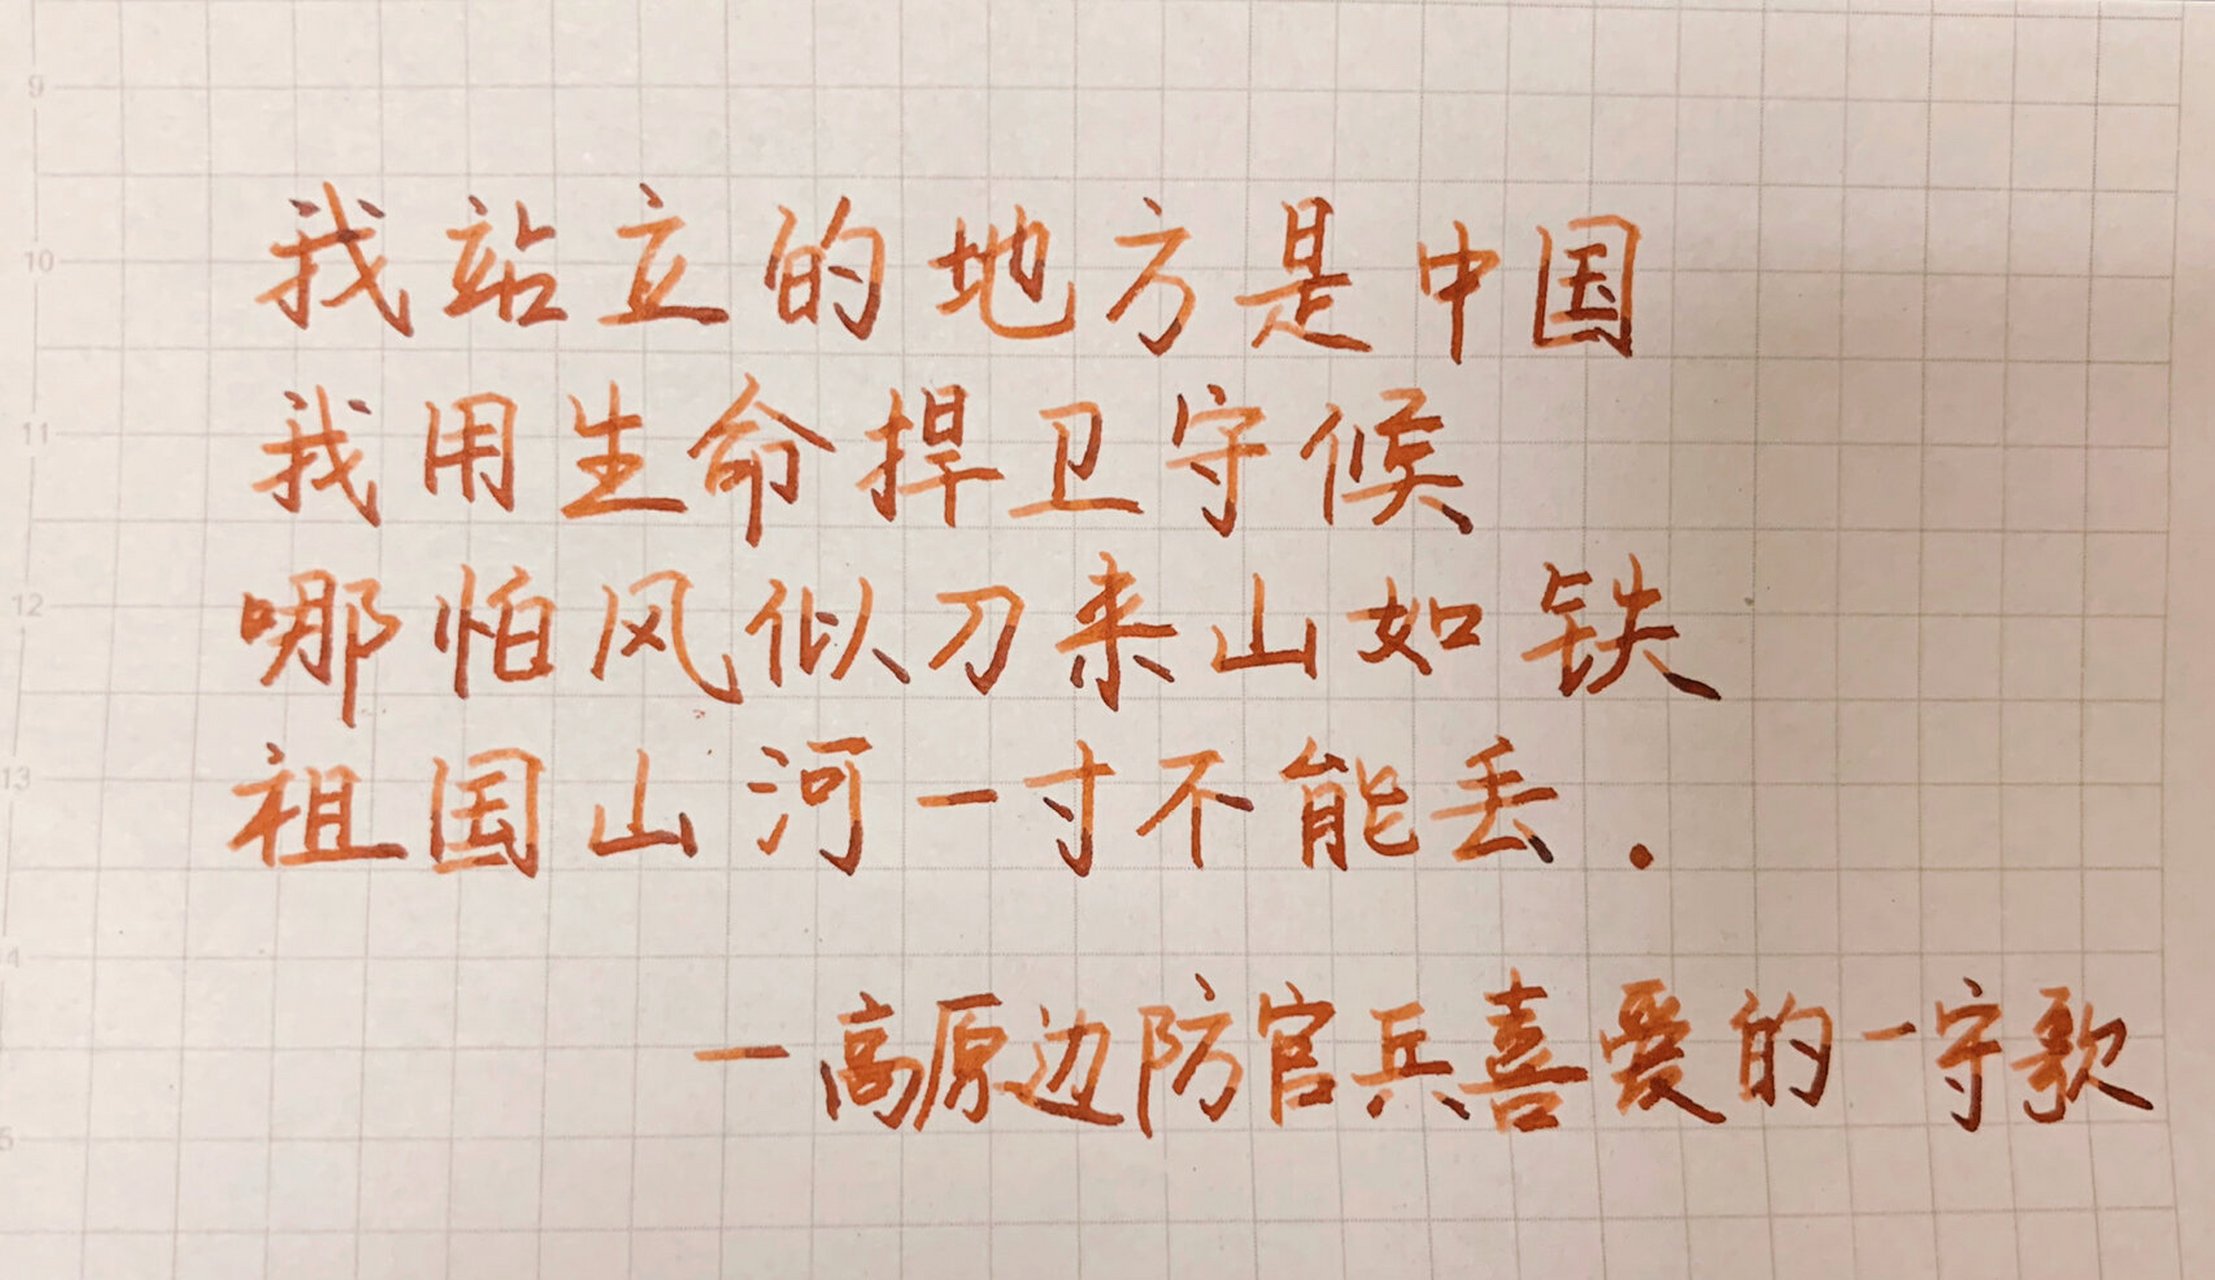 9
10
我站立的地方是中国
11
我用生命捍卫守候
12
哪怕风似刀来山如铁
13
祖国山河一寸不能丢.
14
一高原边防官兵喜爱的一守歌
5